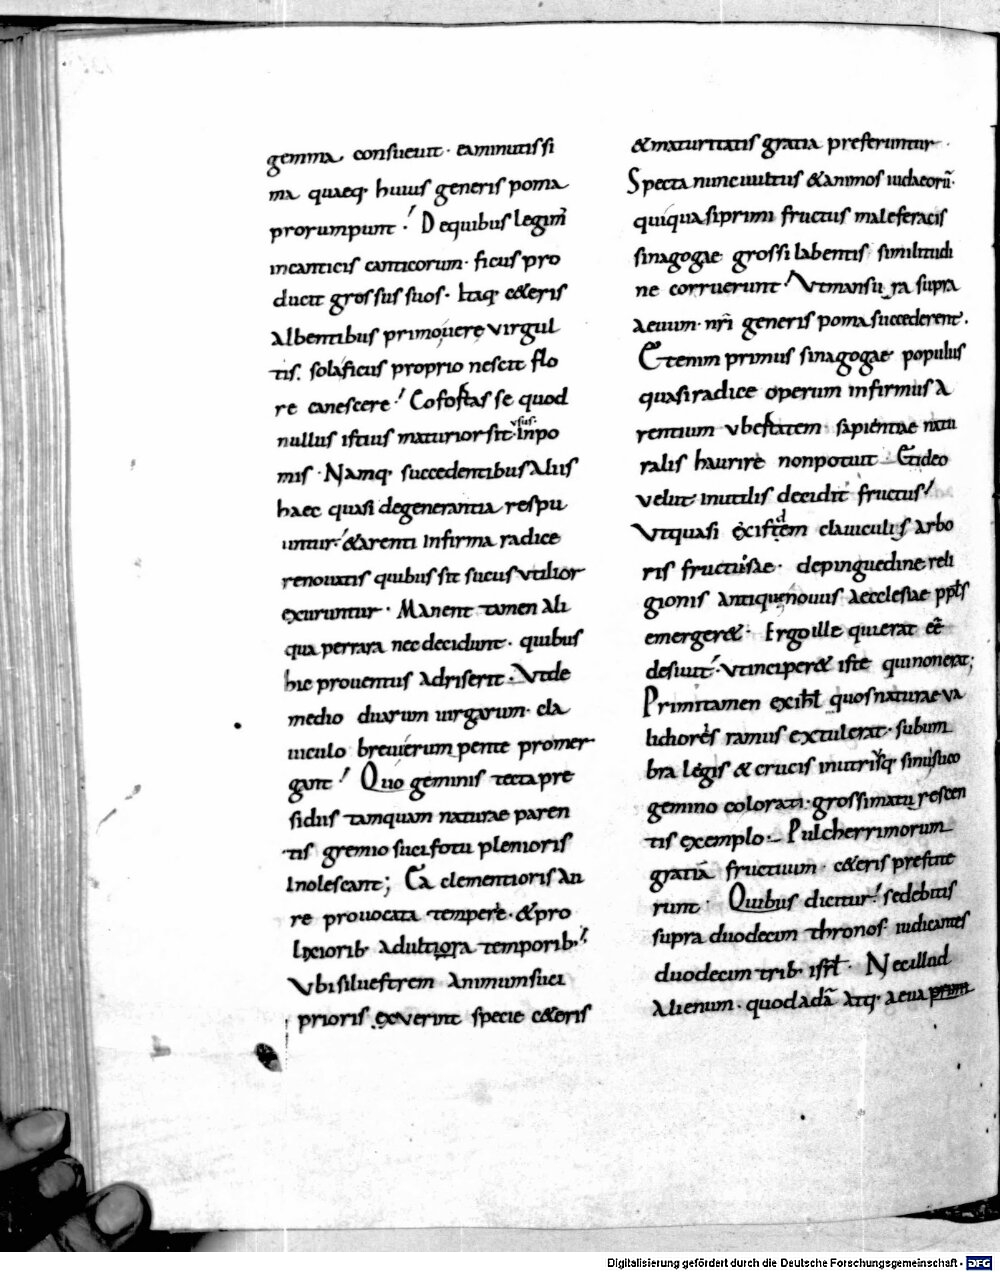 gemma. consueuit. eaminutissi
ma quaeq. huius generis poma
prorumpunt. Dequibus legim̃
incanticis canticorum. ficus pro
ducit grossus suos. Itaq. c&eris
albentibus primouere virgul
tis. solaficus proprio nescit flo
re canescere. Cofoftas se quod
nullus istius maturior sit. vsus inpo
mis. Namq. succedentibus aliis
haec quasi degenerantia respu
untur. &arenti infirma radice
renouatis quibus sit sucus vtilior
exuruntur. Manent tamen ali
qua perrara nec decidunt. quibus
hic prouentus adriserit. Vtde
medio duarum uirgarum. cla
uiculo breuiérum pente promer
gant. Quo geminis tecta pre
sidiis tamquam naturae paren
tis gremio sucifotu plenioris
Inolescant; Ea clementioris au
re prouocata tempere. &pro
lixiorib adultiora temporib.
Vbi siluestrem animum suci
prioris exverint specie c&eris
&maturitatis gratia preferuntur.
Specta nunc uultus &animos iudaeorũ.
quiquasiprimi fructus maleferacis
sinagogae grossi labentis similitudi
ne corruerunt. Vtmansura supra
aeuum. nr̃i generis poma succederent.
Etenim primus sinagogae populus
quasiradice operum infirmus a
rentium vbertatem sapientiae natu
ralis haurire nonpotuit. Etideo
velut inutilis decidit fructus.
Vtquasi exisdem clauiculis arbo
ris fructuosae. depinguedine reli
gionis antique nouus aecclesiae ppl̃s
emerger&. Ergoille quierat eẽ
desiuit. vtinciper& iste quinonerat;
Primitamen exihl̃ quosnaturaeva
lichores ramus extulerat. subum
bra legis & crucis inutrisq. sinu suco
gemino colorati. grossimaturescen
tis exemplo. Pulcherrimorum
gratiã fructuum. c&eris prestite
runt. Quibus dicitur. sedebitis
supra duodecim thronos iudicantes
duodecim trib. isrl̃. Necillud
alienum. quodadã atq. aeua
Digitalisierung gefördert durch die Deutsche Forschungsgemeinschaft - DFG